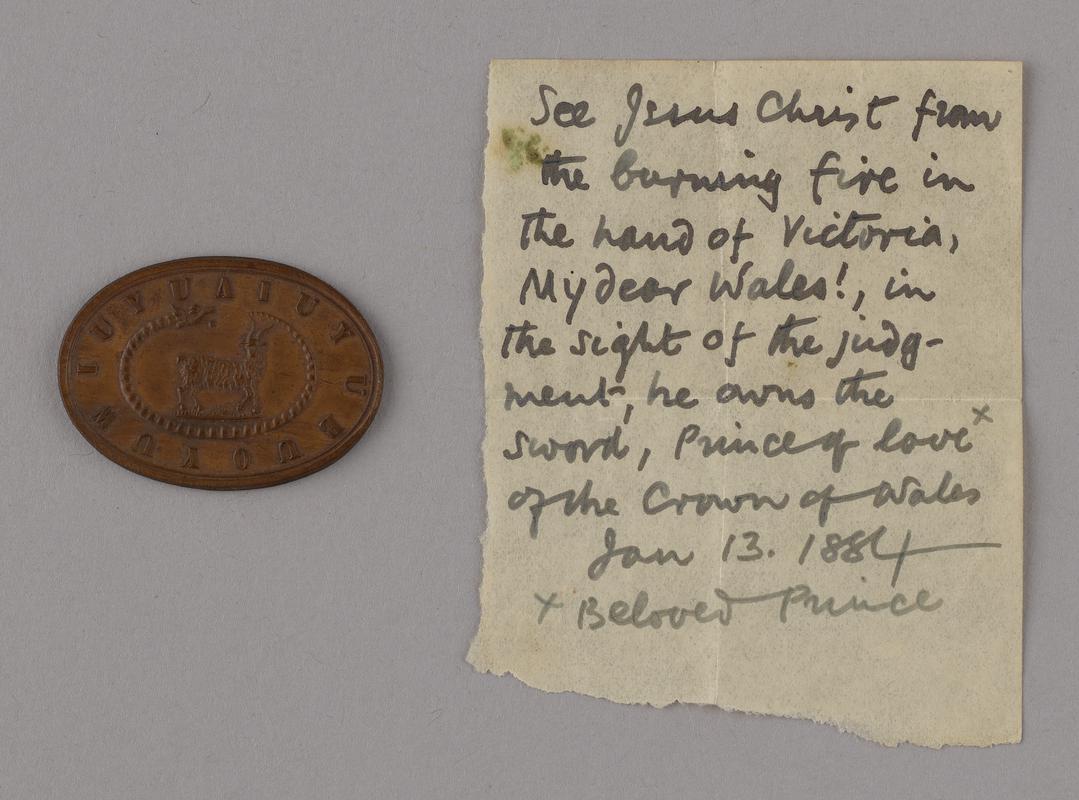 See Jesus Christ from
the burning fire in
the hand of Victoria,
My dear Wales!, in
the sight of the judg-
ment, he owns the
sword, Prince of love x
of the Crown of Wales
Jan 13. 1884
x Beloved Prince